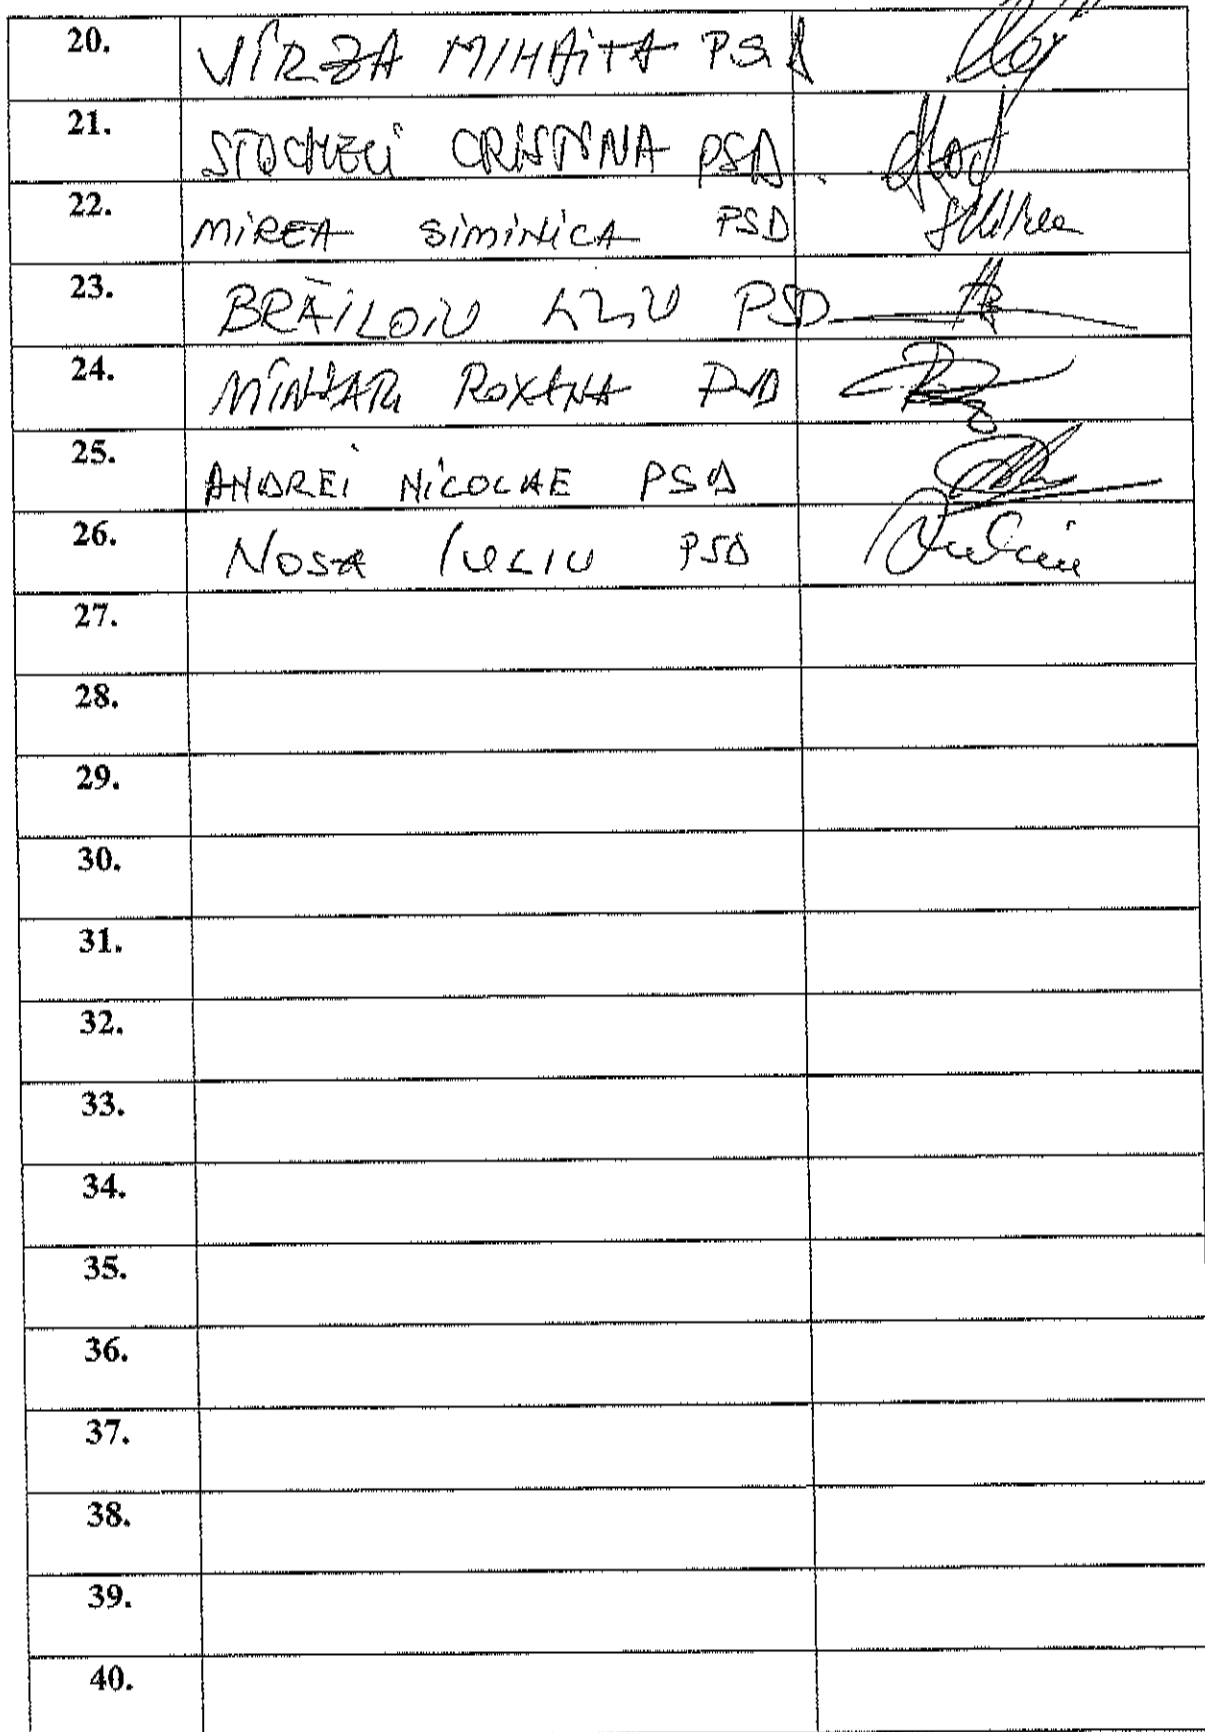 20. VÎRZA MIHAITA PSD
21. CRISTINA PSD
22. MIREA SIMINICA PSD
23. BRĂILOIU LIVIU PSD
24. ROXANA PSD
25. ANDREI NICOLAE PSD
26. NOSA IULIU PSD
27.
28.
29.
30.
31.
32.
33.
34.
35.
36.
37.
38.
39.
40.